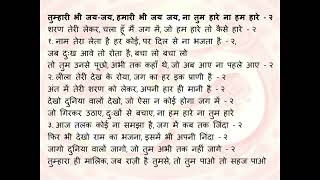 तुम्हारी भी जय-जय, हमारी भी जय जय, ना तुम हारे ना हम हारे - २
शरण तेरी लेकर, चला हूँ मैं जग में, जो हम हारे तो कैसे हारे - २
१. नाम तेरा लेता है हर कोई, पर दिल से ना भजता है - २
जब दुःख आवे तो रोता है, बचा लो बचा लो
तो तुम उनसे पूछो, अभी तक कहाँ थे, जो अब आए ना पहले आए - २
२. लीला तेरी देख के रोया, जग का हर इक प्राणी है - २
अंत में तेरी शरण को लेकर, अपनी हार ही मानी है
देखो दुनिया वालों देखो, जो ऐसा न कोई होगा जग में - २
जो गिरकर उठाए, दुःखों से बचाए, ना हम हारे ना तुम हारे
३. आज तलक कोई ना समझा है, जग में कब तक जिंदा - २
फिर भी देखो राम का भजना, इसमें भी अपनी निंदा - २
जागो दुनिया वालों जागो, जो तुम अभी तक नहीं जागे - २
तुम्हारा ही मालिक, जब राज़ी है तुमसे, तो तुम पाओ तो सहज पाओ